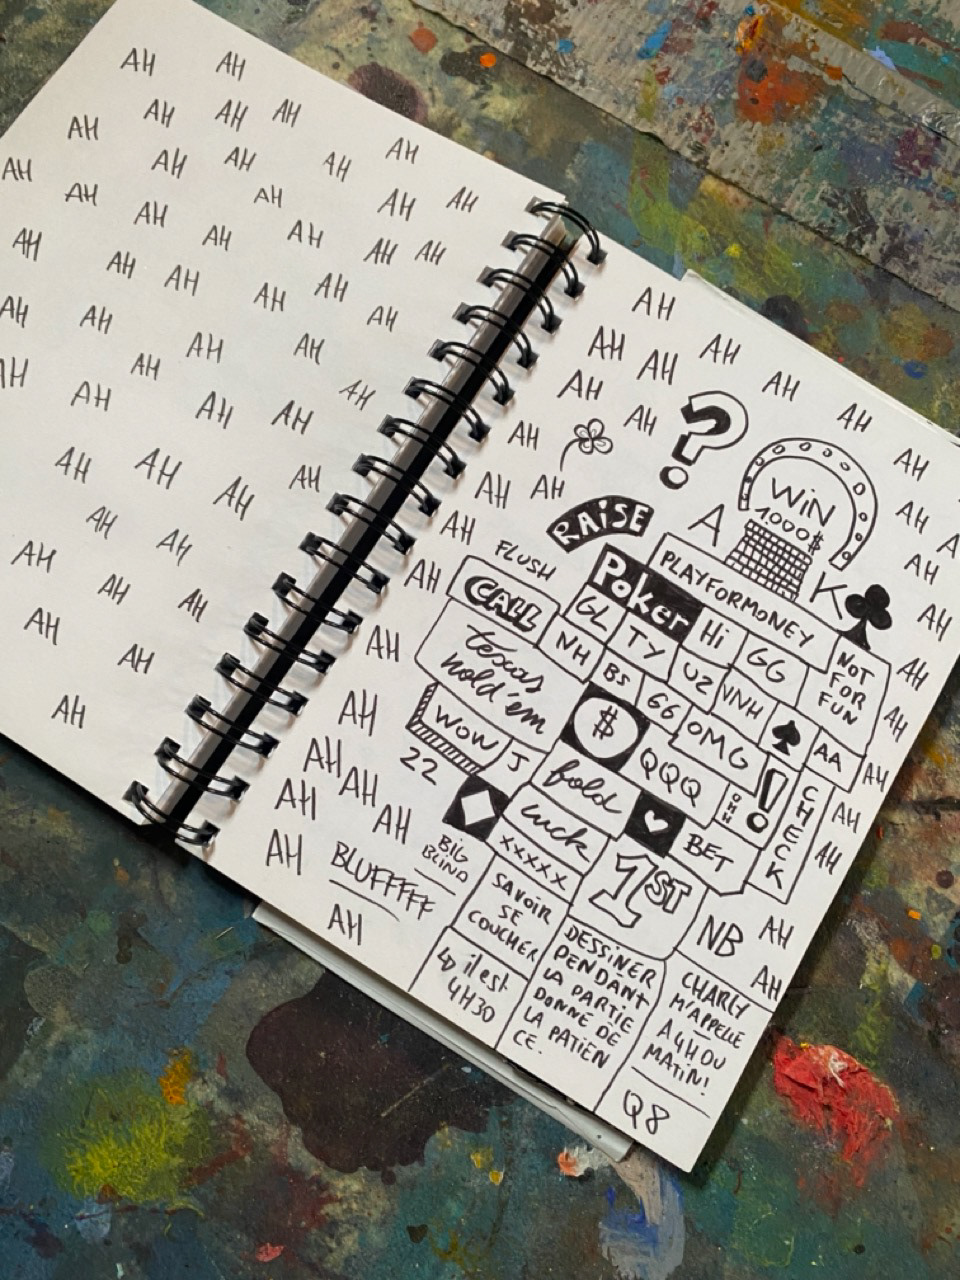 AH AH
AH AH AH AH
AH AH AH AH AH
AH AH AH AH AH AH
AH AH AH AH AH
AH AH AH AH AH
AH AH AH AH
AH AH AH AH
AH AH AH AH
AH AH AH AH
AH AH
AH AH AH
AH AH
AH
AH
AH AH AH
AH AH AH
AH AH ? AH
AH AH AH
AH AH
AH AH AH
AH AH
AH AH
AH AH
AH
AH AH
AH AH
AH AH
AH
WIN
1.000$
RAISE
A
K
FLUSH
CALL
Poker
PLAYFORMONEY
GL
TY
Hi
GG
NOT
FOR
FUN
texas
hold'em
NH
BS
UZ
VNH
66
OMG
AA
WOW
J
$
QQQ
OHH
!
CHECK
22
fold
luck
BET
XXXXX
1ST
BIG
BLIND
BLUFFFFF
NB
SAVOIR
SE
COUCHER
↳ il est
4H30
DESSINER
PENDANT
LA PARTIE
DONNE DE
LA PATIEN
CE.
CHARLY
M'APPELLE
A 4H DU
MATIN!
Q8